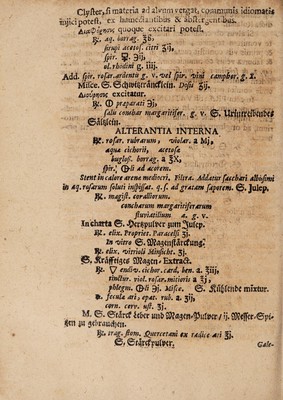 Clyster, si materia ad alvum vergat, communis idiomatis
injici potest, ex humectantibus & abstergentibus.
Διαφόρησις quoque excitari potest.
℞. aq. borrag. ℥iß.
sirupi acetos. citri ℥ij,
spir. 🜍. ℈j
ol. rhodini g. iiij.
Add. spir. rosar. ardentis g. v. vel spir. vini camphor. g. x.
Misce. S. Schwitzträncklein. Dosis ℥ij.
Διούρησις excitatur.
℞. præparati ℈j,
salis concbar margaritifer. g. v. S. Urintreibendes
Sältzlein.
ALTERANTIA INTERNA
℞. rosar. rubrarum, violar. a Mj,
aqua cichorii, acetosæ
buglos. borrag. a ℥X,
spir. ad acorem.
Stent in calore arenæ mediocri. Filtra. Addatur sacchari albissimi
in aq. rosarum soluti inspissat. q. s. ad gratum saporem. S. Julep.
℞. magist. coralliorum.
concharum margaritiferarum
fluviatilium a. g. v.
In charta S. Hertzpulver zum Julep.
℞. elix. Propriet. Paracelsi ʒj.
In vitro S. Magenstärckung.
℞. elix. vitrioli Minsicht. ʒj.
S. Kräfftiges Magen-Extract.
℞. endiv. cichor. card. ben. a ℥iij,
tinctur. viol. rosar. mitioris a ʒj,
phlegm. ℥j. Misce. S. Kühlende mixtur.
℞. fecula ari, epat. rub. a ʒij,
corn. cerv. ust. ʒj.
M. S. Stärck leber und Magen-Pulver/ ij. Messer-Spi-
tzen zu gebrauchen.
℞. trag. stom. Quercetani ex radice ari ʒj.
S. Stärckpulver.
Gale-